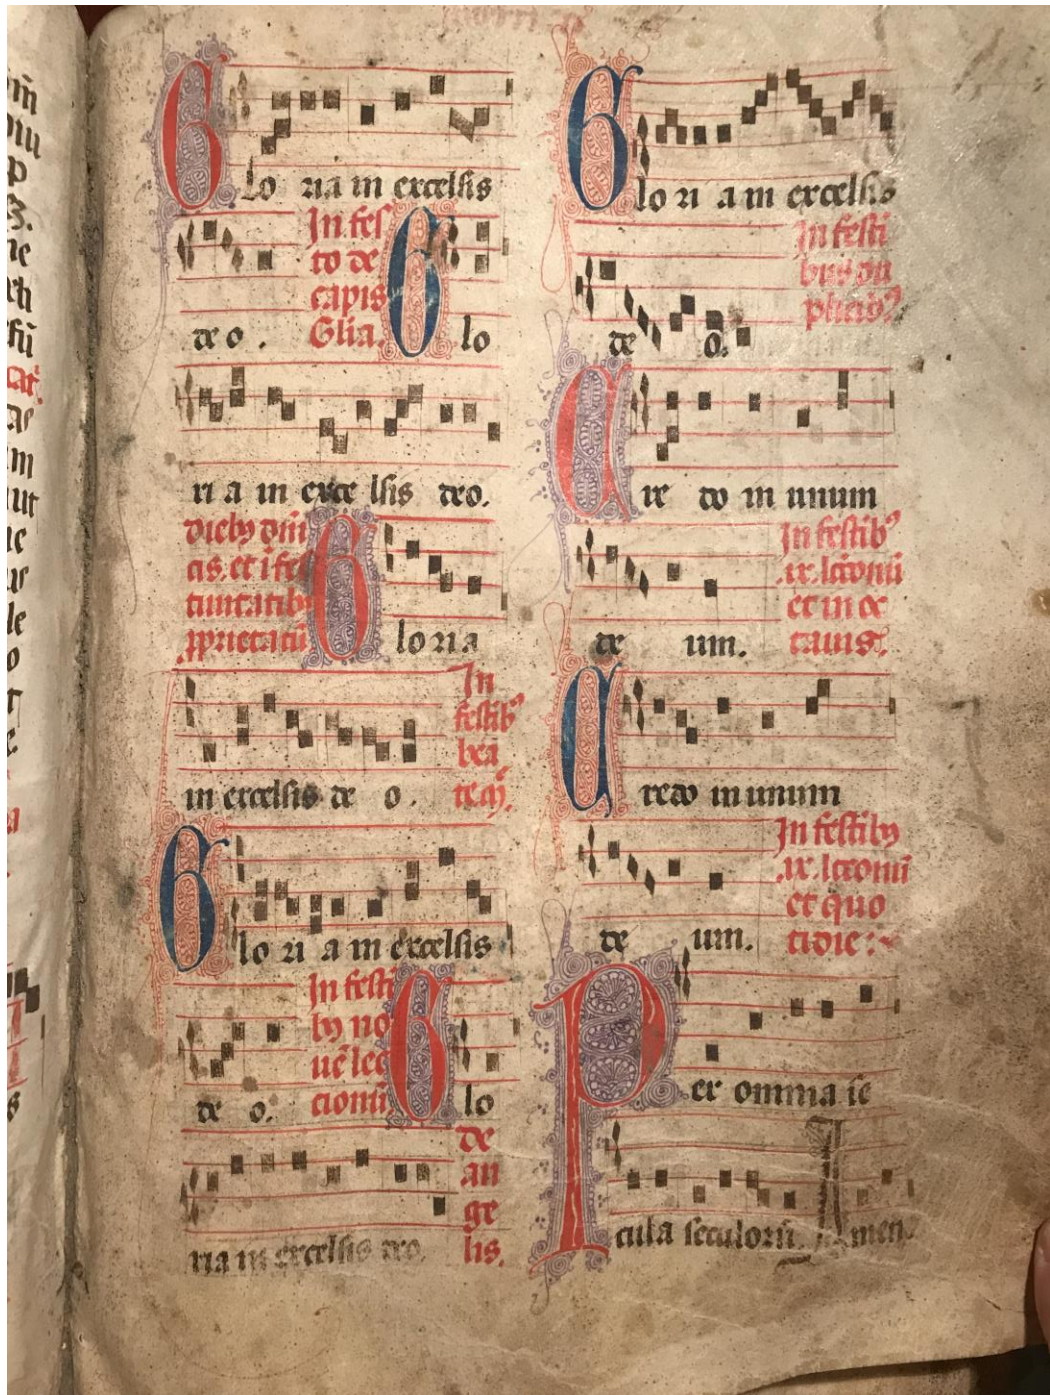 Glo ria in excelsis
deo.
In fes
to de
capis
Glia.
Glo
ri a in exce lsis deo.
dieby dñi
cis. et ĩ fes
tiuitatiby
pprietatũ.
Gloria
in excelsis de o.
In
festib⁹
bea
te
Glo ri a in excelsis
de o.
In festi
by no
uẽ lec
cionũ.
Glo
ria in excelsis deo.
de
an
ge
lis.
Glo ri a in excelsis
de o.
In festi
bus du
plicib⁹
Cre do in unum
de um.
In festib⁹
.ix. lcõnũ
et in oc
tauis.
Credo in unum
de um.
In festiby
.ix. lcconũ
et quo
tidie:
Per omnia se
cula seculorũ. Amen.